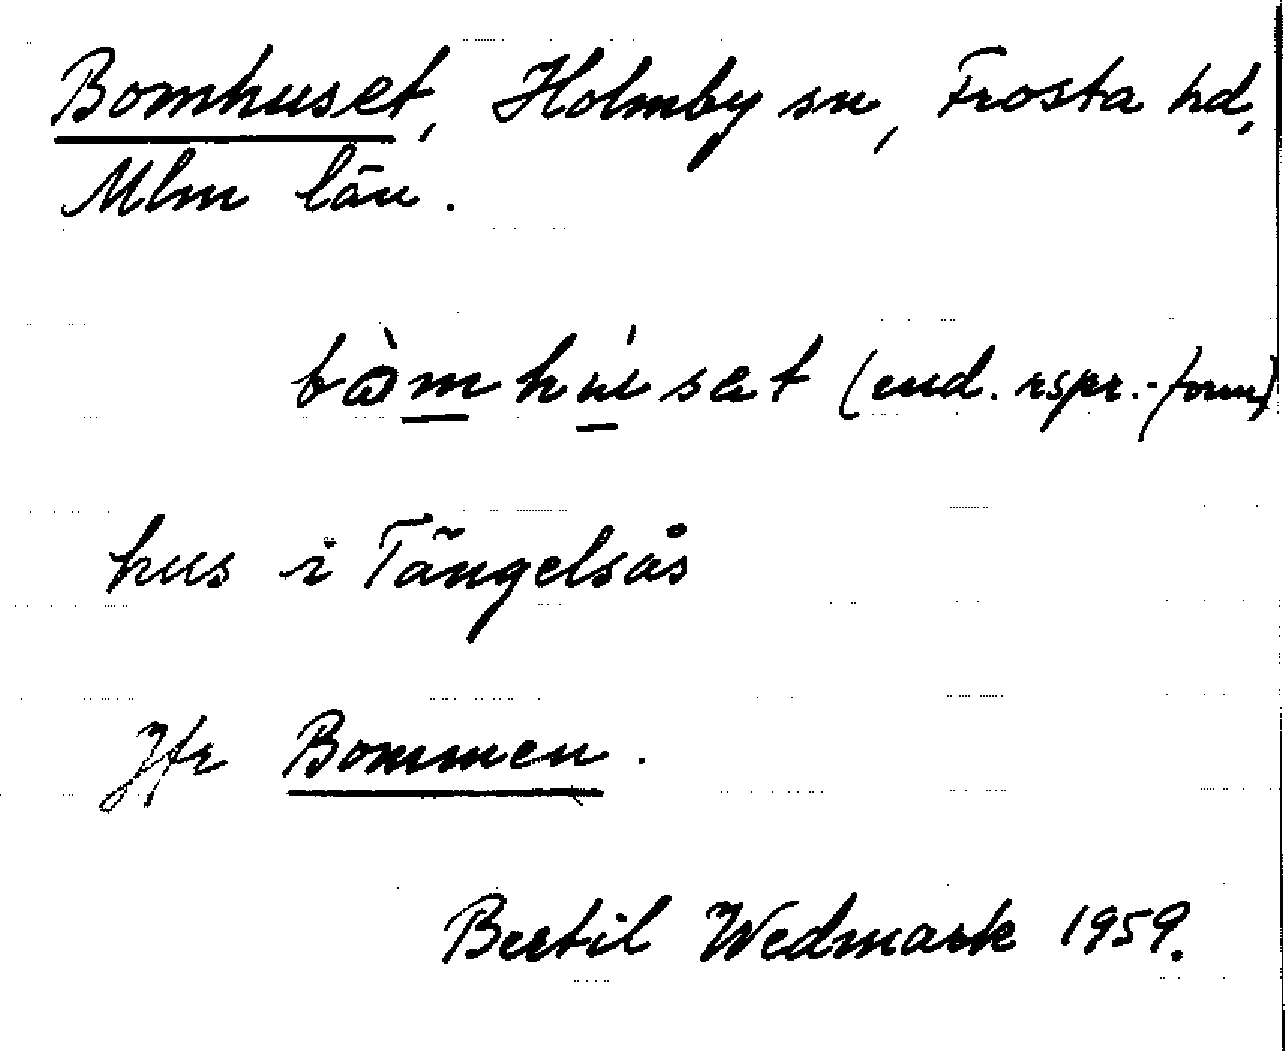 Bomhuset, Holmby sn, Frosta hd,
Mlm län.
bòmhúsat (end. rspr.-form)
hus i Tängelsås
Jfr Bommen.
Bertil Wedmark 1959.